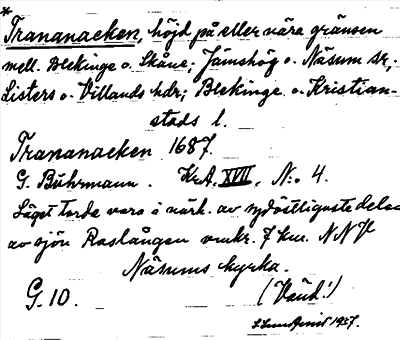 *
Trananacken, höjd på eller nära gränsen
mell. Blekinge o. Skåne; Jämshög o. Näsum sr;
Listers o. Villands hdr; Blekinge o. Kristian-
stads l.
Trananacken 1687.
G. Buhrmann. Kr.A. XVII, No. 4.
Läget torde vara i närh. av sydöstligaste delen
av sjön Raslången omkr. 7 km. NNV
Näsums kyrka.
G. 10. (Vänd!)
1937.